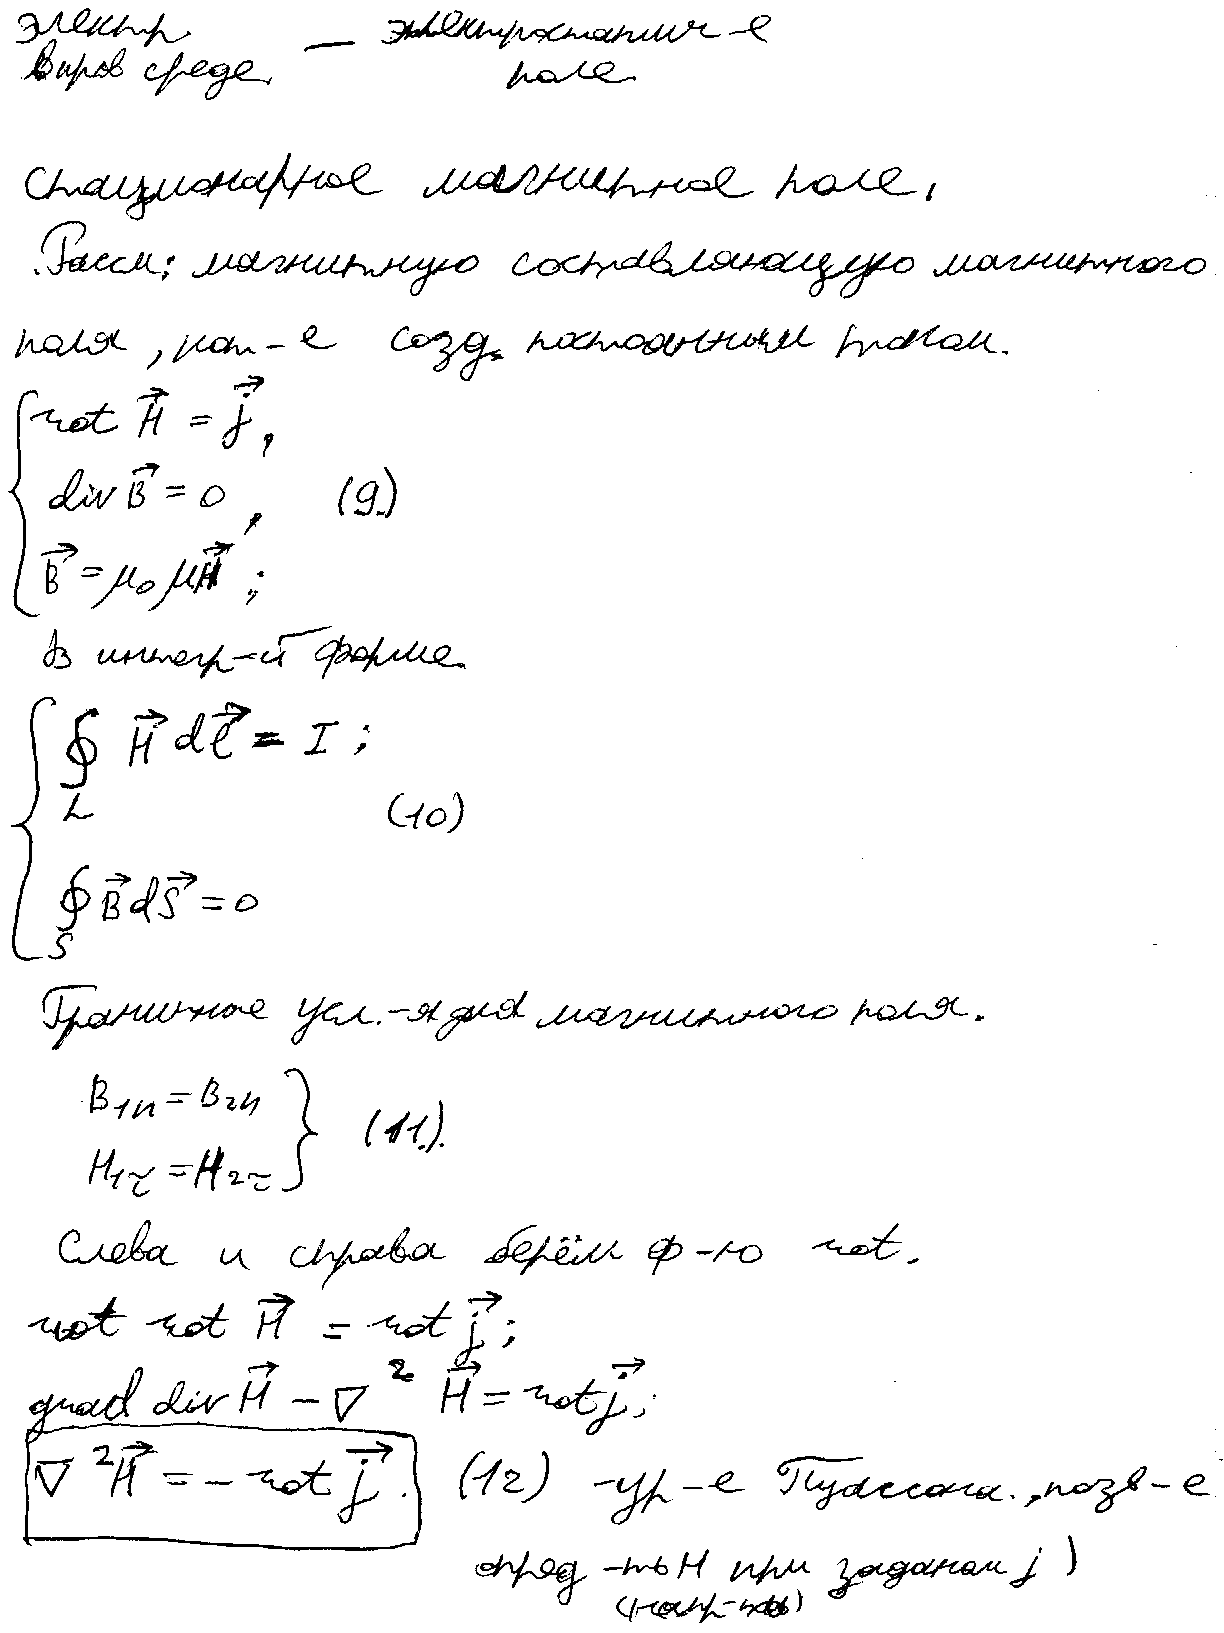 электр. — электростатич-е
в пров среде. поле.
Стационарное магнитное поле.
Рассм: магнитную составляющую магнитного
поля, кот-е созд. постоянным током.
rot H⃗ = j⃗,
div B⃗ = 0, (9.)
B⃗ = μ₀ μH⃗;
В интегр-й форме.
∮ H⃗ dℓ⃗ = I;
L (10)
∮ B⃗ dS⃗ = 0
S
Граничное усл.-я для магнитного поля.
B₁n = B₂n
(11.).
H₁τ = H₂τ
Слева и справа берём ф-ю rot.
rot rot H⃗ = rot j⃗;
grad div H⃗ − ∇² H⃗ = rot j⃗;
∇²H⃗ = − rot j⃗. (12) -ур-е Пуассона., позв-е
опред-ть H при заданом j)
(напр-ть)